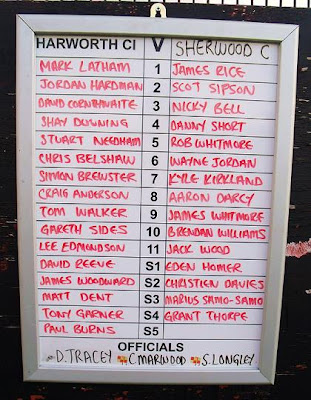 HARWORTH CI V SHERWOOD C
MARK LATHAM 1 JAMES RICE
JORDAN HARDMAN 2 SCOT SIPSON
DAVID CORNTHWAITE 3 NICKY BELL
SHAY DOWNING 4 DANNY SHORT
STUART NEEDHAM 5 ROB WHITMORE
CHRIS BELSHAW 6 WAYNE JORDAN
SIMON BREWSTER 7 KYLE KIRKLAND
CRAIG ANDERSON 8 AARON DARCY
TOM WALKER 9 JAMES WHITMORE
GARETH SIDES 10 BRENDAN WILLIAMS
LEE EDMONDSON 11 JACK WOOD
DAVID REEVE S1 EDEN HOMER
JAMES WOODWARD S2 CHRISTIEN DAVIES
MATT DENT S3 MARIUS SAMO-SAMO
TONY GARNER S4 GRANT THORPE
PAUL BURNS S5
OFFICIALS
D. TRACEY C. MARWOOD S. LONGLEY